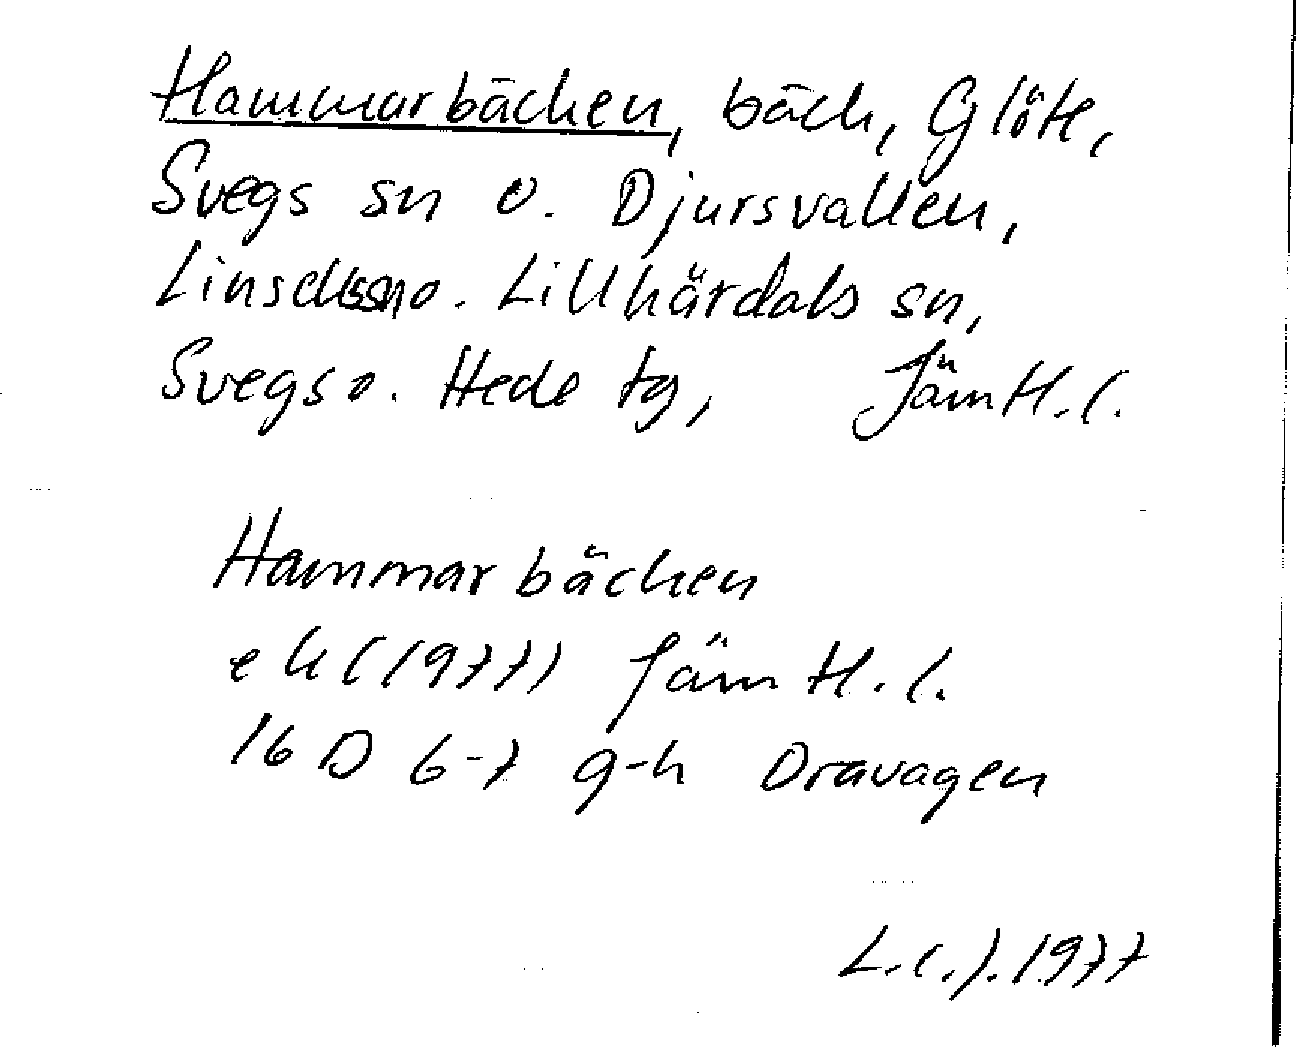 Hammarbäcken, bäck, Glöte,
Svegs sn o. Djursvallen,
Linsell o. Lillhärdals sn,
Svegs o. Hede tg, Jämtl. l.
Hammarbäcken
ek (1977) Jämtl. l.
16 D 6-7 g-h Dravagen
1977